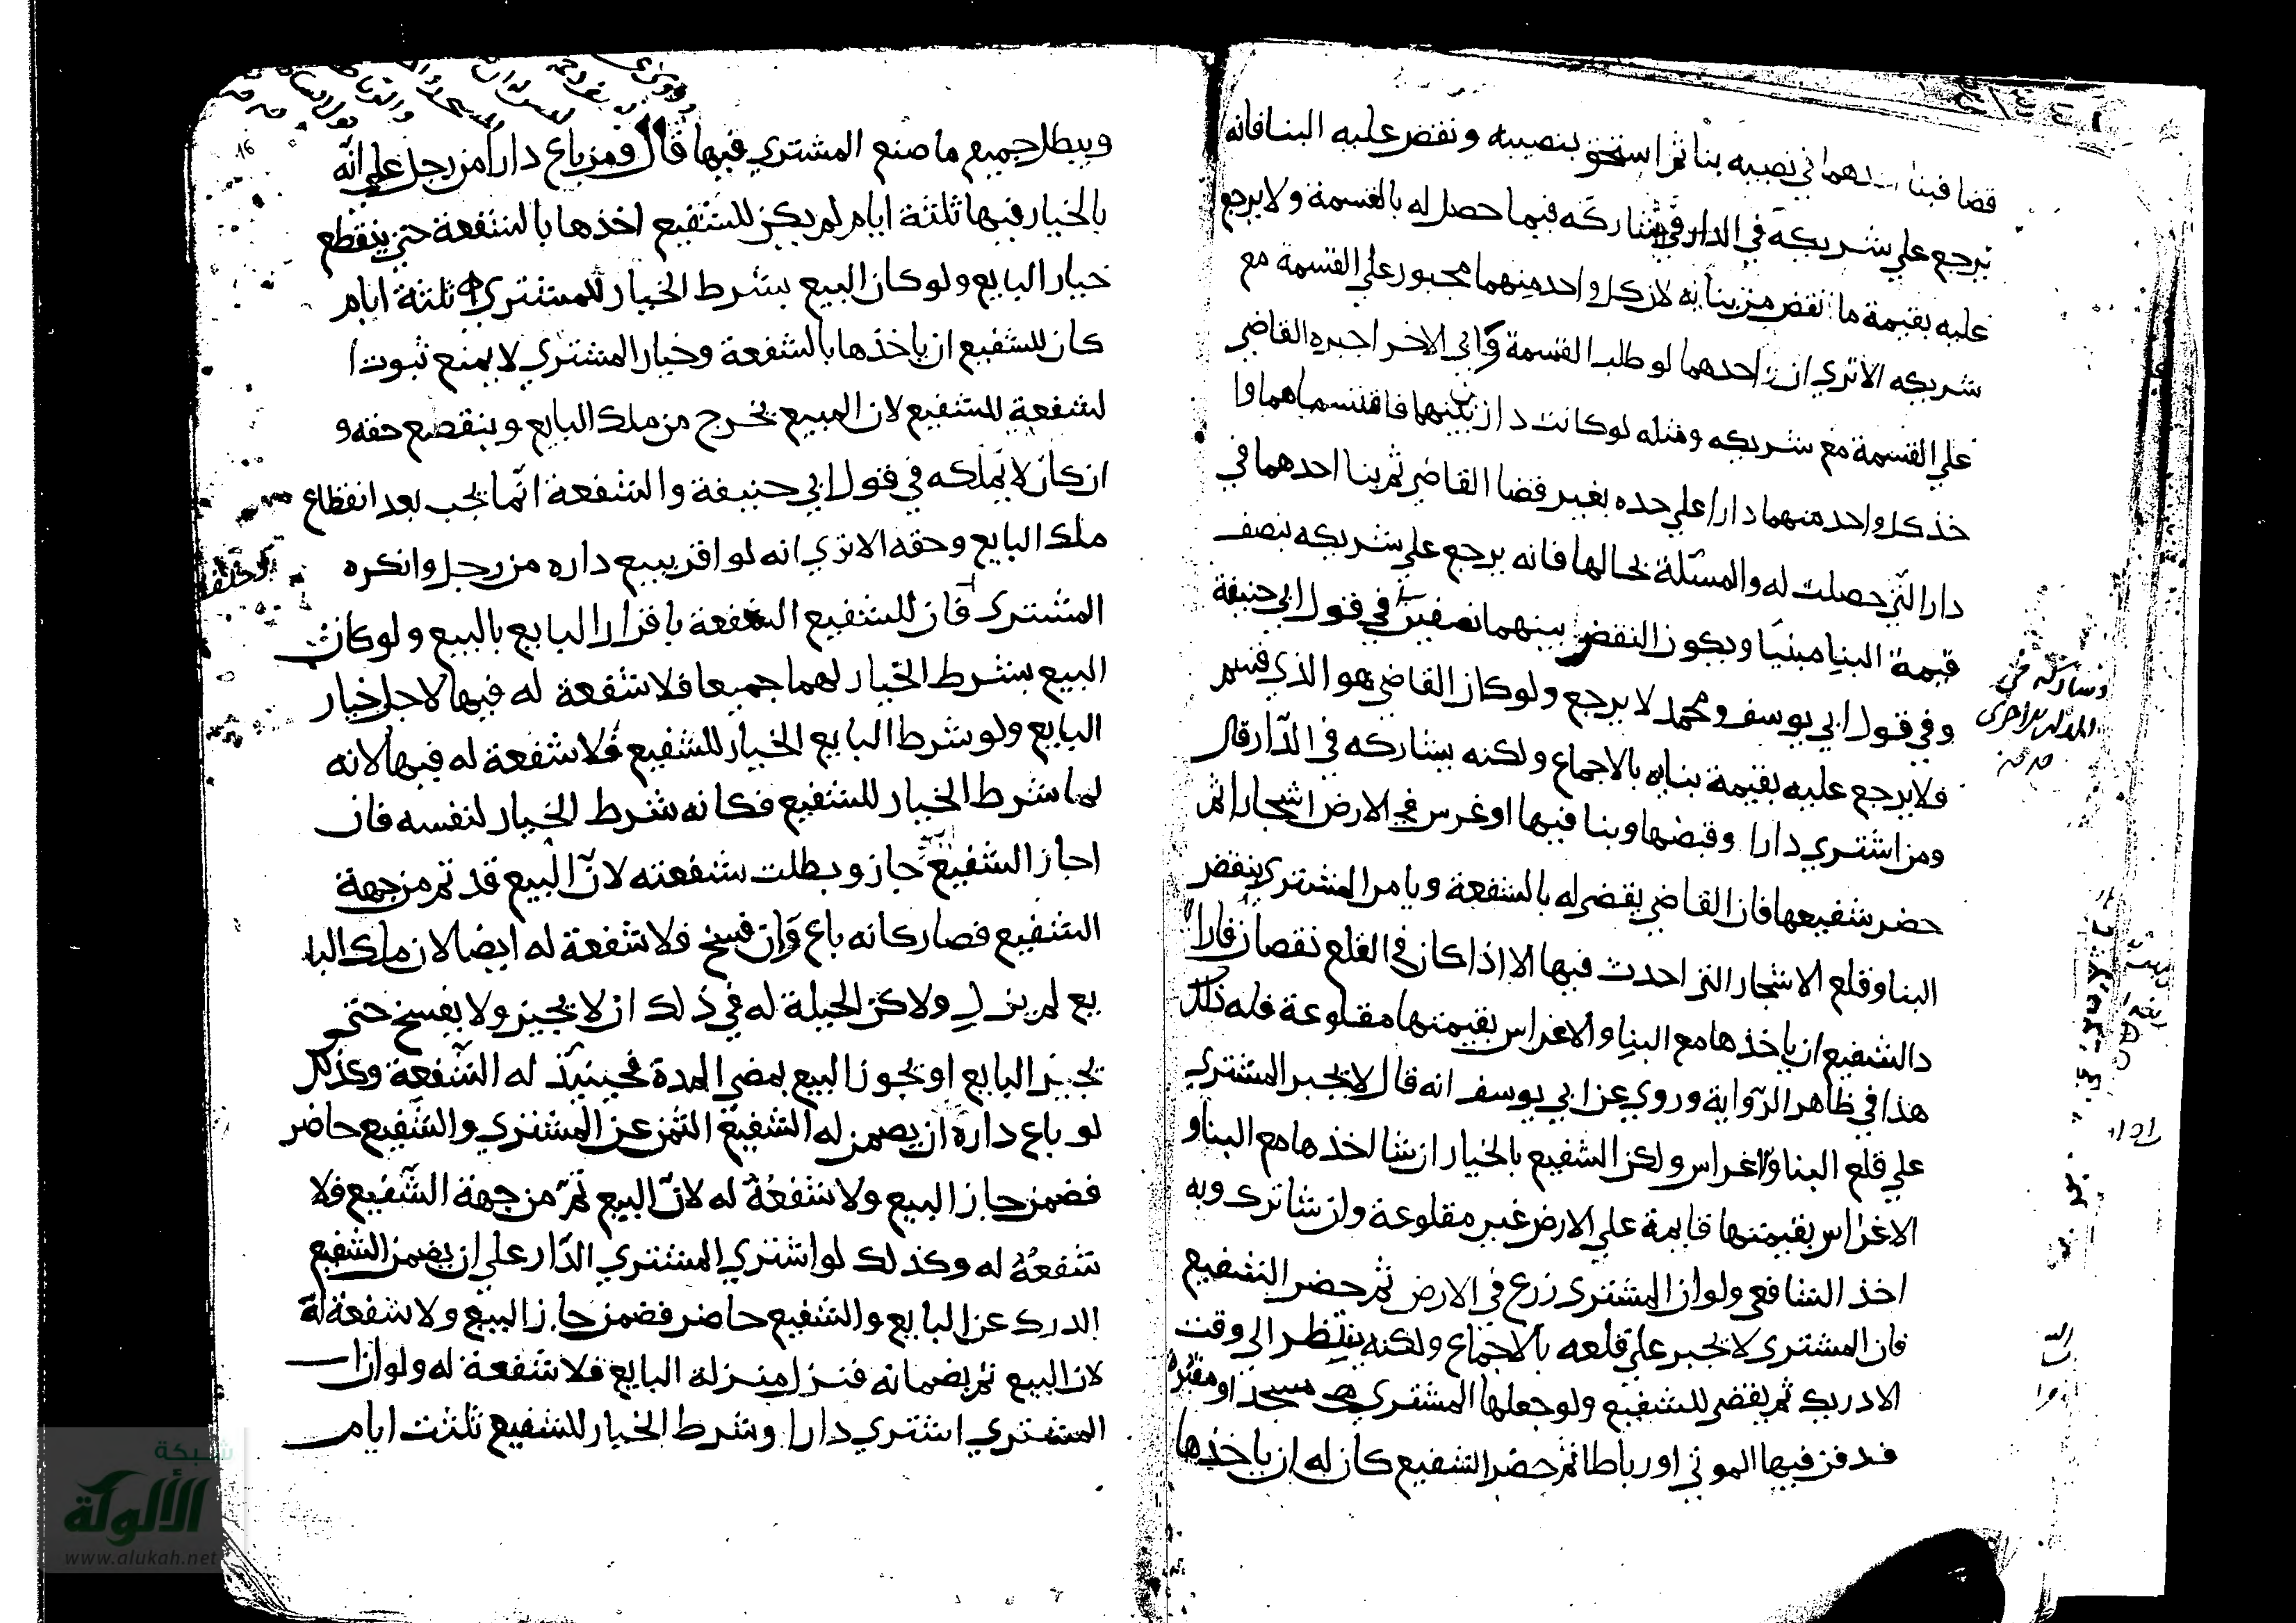 قضا فبنا احدهما في نصيبه بنا ثم استحق بنصيبه ونقض عليه البنا فانه
يرجع علي شريكه في الدار فيشاركه فيما حصل له بالقسمة ولا يرجع
عليه بقيمة ما نقض من بنائه لان كل واحد منهما مجبور علي القسمة مع
شريكه الا تري ان احدهما لو طلب القسمة وابي الاخر اجبره القاضي
علي القسمة مع شريكه ومثله لو كانت داران بينهما فاقتسماهما وا
خذ كل واحد منهما دارا علي حده بغير قضا القاضي ثم بنا احدهما في
دار التي حصلت له والمسئلة بحالها فانه يرجع علي شريكه بنصف
قيمة البنا مبنيا ويكون النقض بينهما نصفين في قول ابي حنيفة
وفي قول ابي يوسف ومحمد لا يرجع ولو كان القاضي هو الذي قسم
فلا يرجع عليه بقيمة بنايه بالاجماع ولكنه يشاركه في الدار قال
ومن اشتري دارا وقبضها وبنا فيها او غرس في الارض اشجارا ثم
حضر شفيعها فان القاضي يقضي له بالشفعة ويامر المشتري بنقض
البنا وقلع الاشجار التي احدث فيها الا اذا كان في القلع نقصان فارا
د الشفيع ان ياخذها مع البنا والاغراس بقيمتها مقلوعة فله ذلك
هذا في ظاهر الرواية وروي عن ابي يوسف انه قال لا يجبر المشتري
علي قلع البنا والاغراس ولكن الشفيع بالخيار ان شا اخذها مع البنا و
الاغراس بقيمتها قايمة علي الارض غير مقلوعة وان شا ترك وبه
اخذ الشافعي ولو ان المشتري زرع في الارض ثم حضر الشفيع
فان المشتري لا يجبر علي قلعه بالاجماع ولكنه ينتظر الي وقت
الادريك ثم يقضي للشفيع ولو جعلها المشتري مسجدا او مقبرة
فدفن فيها الموتي او رباطا ثم حضر الشفيع كان له ان ياخذها
ويبطل جميع ما صنع المشتري فيها قال ومن باع دارا من رجل علي انه
بالخيار فيها ثلثة ايام لم يكن للشفيع اخذها بالشفعة حتي ينقطع
خيار البايع ولو كان البيع بشرط الخيار للمشتري ثلثة ايام
كان للشفيع ان ياخذها بالشفعة وخيار المشتري لا يمنع ثبوت ا
لشفعة للشفيع لان المبيع يخرج من ملك البايع وينقطع حقه و
ان كان لا يملكه في قول ابي حنيفة والشفعة انما يجب بعد انقطاع
ملك البايع وحقه الا تري انه لو اقر ببيع داره من رجل وانكره
المشتري فان للشفيع الشفعة باقرار البايع بالبيع ولو كان
البيع بشرط الخيار لهما جميعا فلا شفعة له فيها لاجل خيار
البايع ولو شرط البايع الخيار للشفيع فلا شفعة له فيها لانه
لما شرط الخيار للشفيع فكانه شرط الخيار لنفسه فان
اجاز الشفيع جاز وبطلت شفعته لان البيع قد تم من جهة
الشفيع فصار كانه باع وان فسخ فلا شفعة له ايضا لان ملك البا
يع لم يزل ولاكن الحيلة له في ذلك ان لا يجيز ولا يفسخ حتي
يجيز البايع او يجوز البيع بمضي المدة فحينئذ له الشفعة وكذلك
لو باع داره ان يضمن له الشفيع الثمن عن المشتري والشفيع حاضر
فضمن جاز البيع ولا شفعة له لان البيع تم من جهة الشفيع فلا
شفعة له وكذلك لو اشتري المشتري الدار علي ان يضمن الشفيع
الدرك عن البايع والشفيع حاضر فضمن جاز البيع ولا شفعة له
لان البيع تم بضمانه فنزل منزلة البايع فلا شفعة له ولو ان
المشتري اشتري دارا وشرط الخيار للشفيع ثلثت ايام
شبكة
الألوكة
www.alukah.net